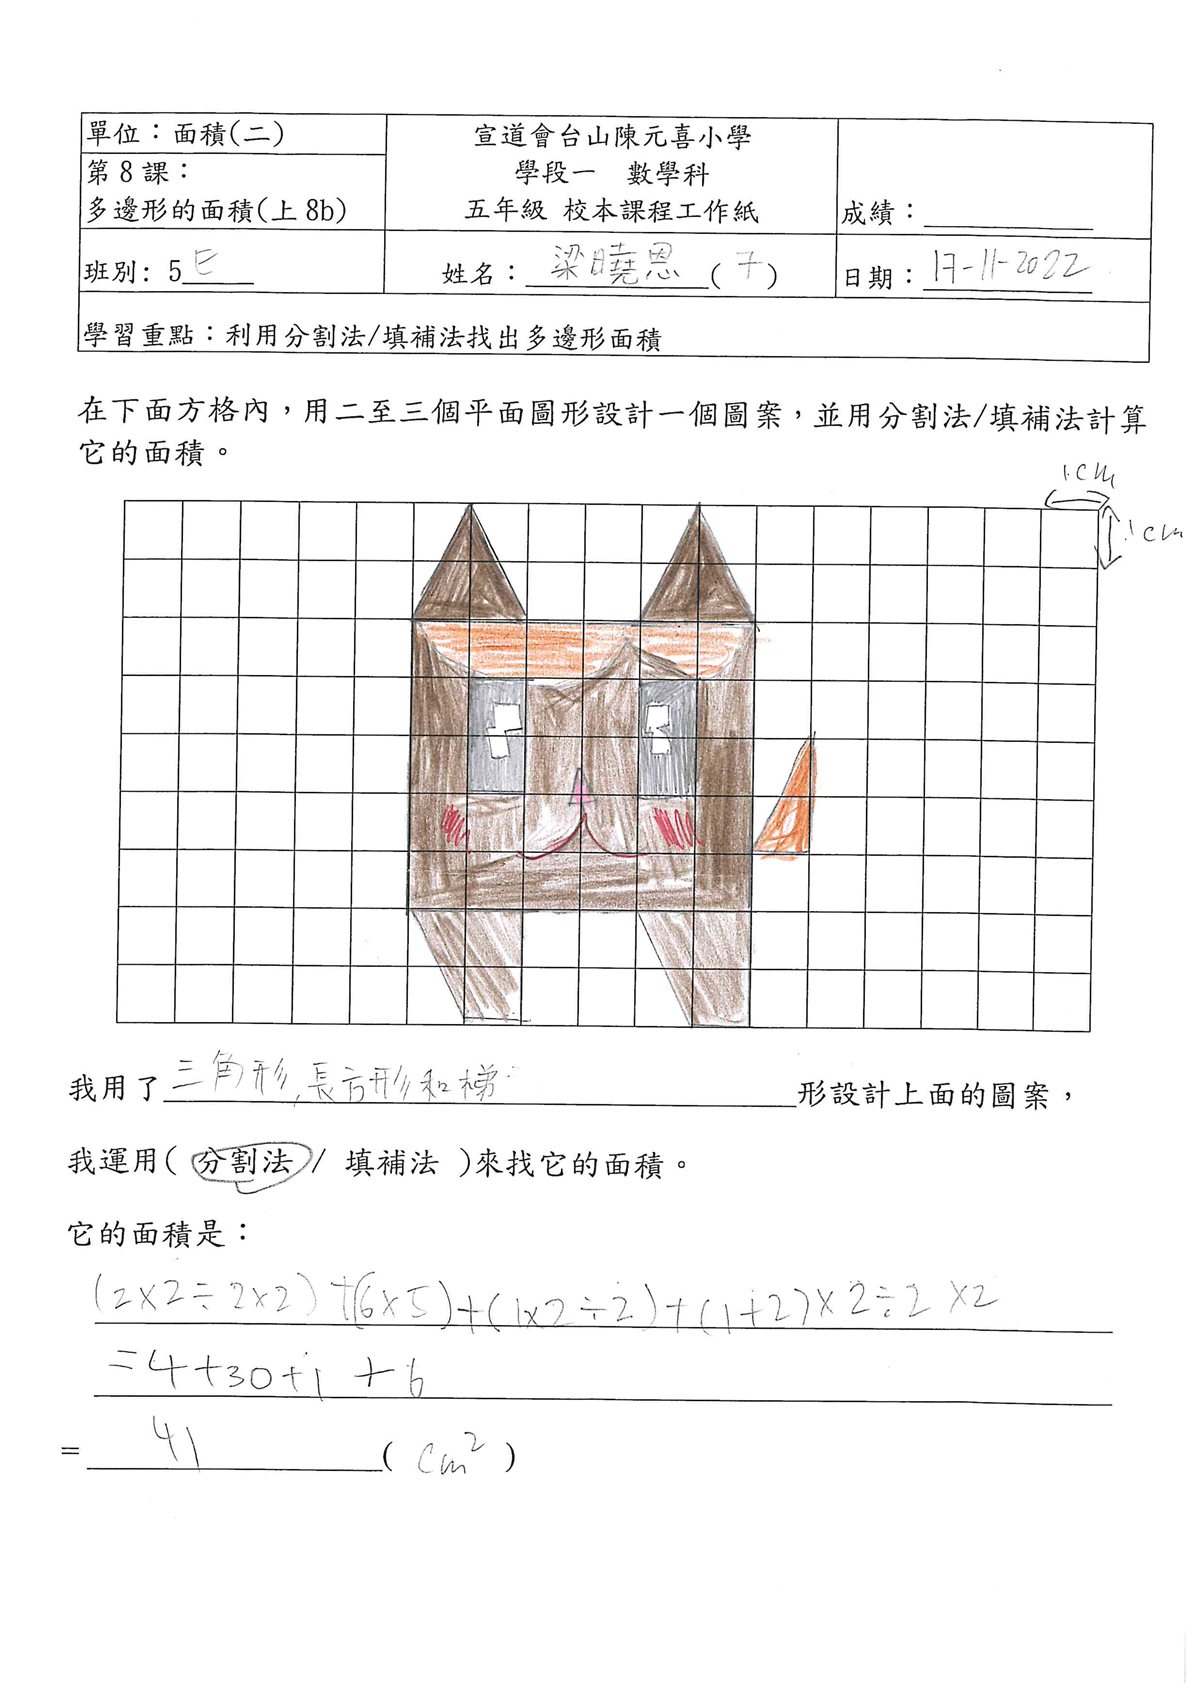 單位：面積(二)
第 8 課：
多邊形的面積(上 8b)
宣道會台山陳元喜小學
學段一　數學科
五年級 校本課程工作紙
成績：
班別: 5 E
姓名： 梁曉恩 ( 7 )
日期： 17-11-2022
學習重點：利用分割法/填補法找出多邊形面積
在下面方格內，用二至三個平面圖形設計一個圖案，並用分割法/填補法計算
它的面積。
1cm
1cm
我用了 三角形,長方形和梯 形設計上面的圖案，
我運用( 分割法 / 填補法 )來找它的面積。
它的面積是：
(2×2÷2×2)+(6×5)+(1×2÷2)+(1+2)×2÷2×2
=4+30+1+6
= 41 ( cm² )